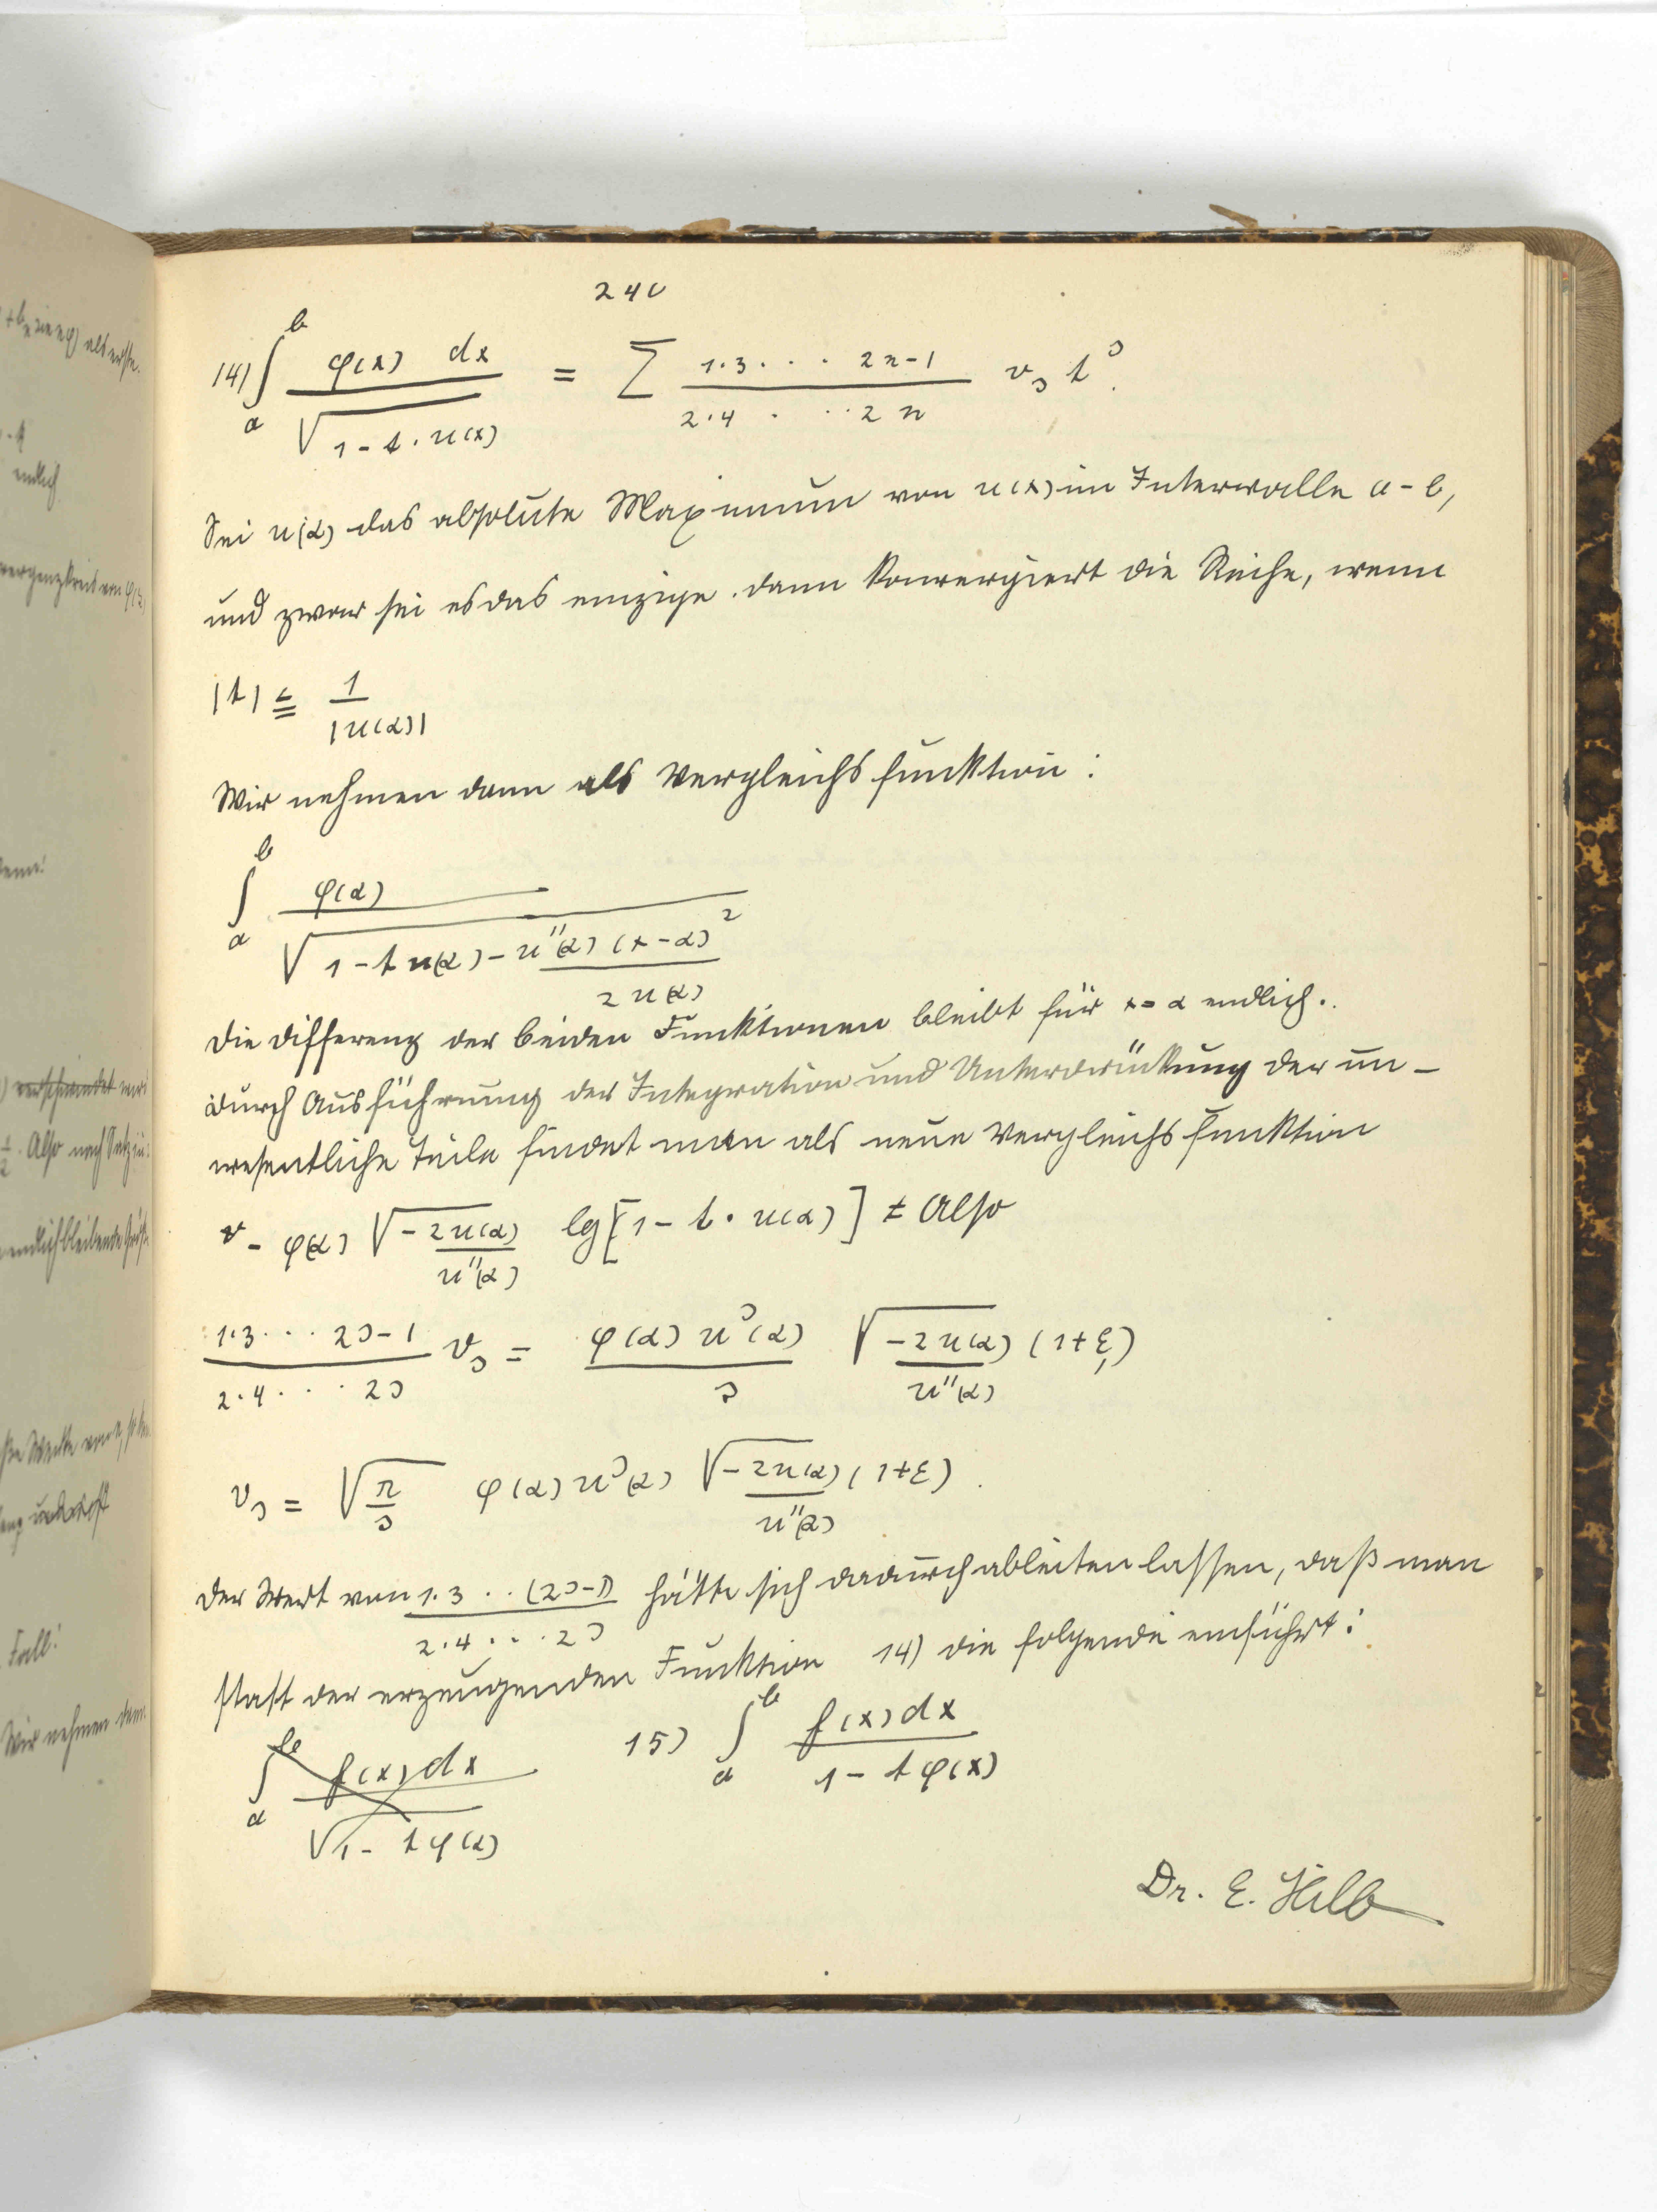 240
14) ∫_a^b φ(x) dx / √(1 - t·u(x)) = Σ 1·3 · · · 2n-1 / 2·4 · · · 2n v_ν t^ν.
Sei u(α) das absolute Maximum von u(x) im Intervalle a-b,
und zwar sei es das einzige. dann konvergiert die Reihe, wenn
|t| ≦ 1 / |u(α)|
Wir nehmen dann als Vergleichsfunktion:
∫_a^b φ(α) / √(1 - t u(α) - u''(α) (x-α)² / 2 u(α))
die differenz der beiden Funktionen bleibt für x=α endlich.
durch Ausführung der Integration und Unterdrückung der un-
wesentliche Teile findet man als neue Vergleichsfunktion
- φ(α) √(-2u(α) / u''(α)) lg[1 - t·u(α)] Also
1·3 · · · 2ν-1 / 2·4 · · · 2ν v_ν = φ(α) u^ν(α) / ν √(-2u(α) / u''(α)) (1+ε_1)
v_ν = √(π/ν) φ(α) u^ν(α) √(-2u(α) / u''(α)) (1+ε)
der Wert von 1·3 · · (2ν-1) / 2·4 · · · 2ν hätte sich dadurch ableiten lassen, daß man
statt der erzeugenden Funktion 14) die folgende einführt:
∫_a^b f(x) dx / √(1 - t φ(x)) 15) ∫_a^b f(x) dx / 1 - t φ(x)
Dr. E. Hilb